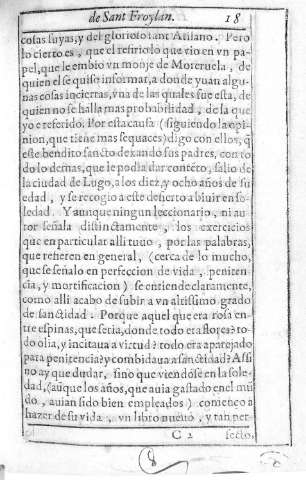 de Sant Froylan. 18
cosas suyas, y del glorioso sant Atilano. Pero
lo cierto es, que el refirio lo que vio en vn pa-
pel, que le embio vn monje de Moreruela, de
quien el se quiso informar, a donde yuan algu-
nas cosas inciertas, vna de las quales fue esta, de
quien no se halla mas probabilidad, de la que
yo e referido. Por esta causa (siguiendo la opi-
nion, que tiene mas sequaces) digo con ellos, q̃
este bendito sancto dexando sus padres, con to
do lo demas, que le podia dar contẽto, salio de
la ciudad de Lugo, a los diez, y ocho años de su
edad, y se recogio a este desierto a biuir en so-
ledad. Y aunque ningun leccionario, ni au-
tor señala distinctamente, los exercicios
que en particular alli tuuo, por las palabras,
que refieren en general, (cerca de lo mucho,
que se señalo en perfeccion de vida, peniten
cia, y mortificacion) se entiende claramente,
como alli acabo de subir a vn altissimo grado
de sanctidad. Porque aquel que era rosa en-
tre espinas, que seria, donde todo era flores? to-
do olia, y incitaua a virtud? todo era aparejado
para penitencia? y combidaua a sanctidad? Assi
no ay que dudar, sino que viendose en la sole-
dad, (aũque los años, que auia gastado en el mũ
do, auian sido bien empleados) començo a
hazer de su vida, vn libro nueuo, y tan per-
C 2 fecto,
8